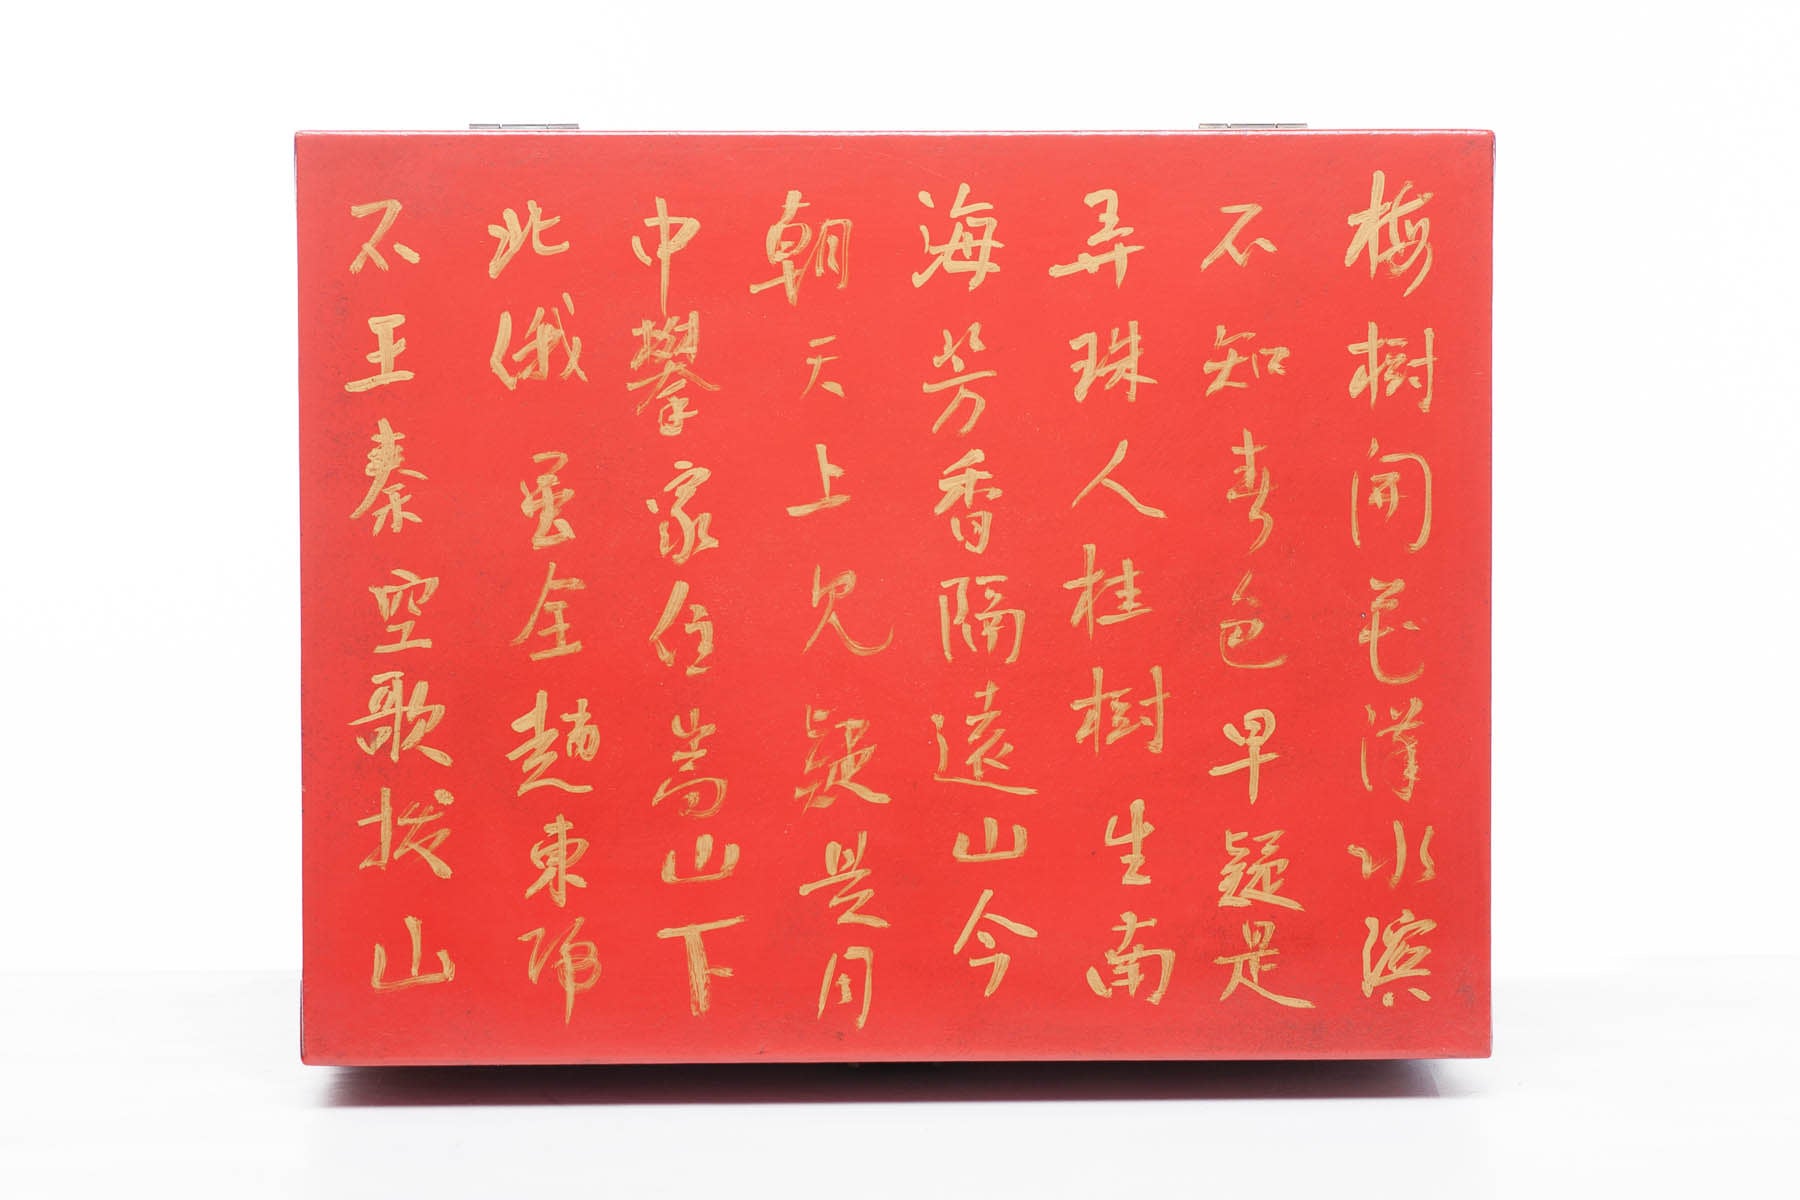 梅樹開花漢水濱
不知春色早疑是
弄珠人桂樹生南
海芳香隔遠山今
朝天上見疑是月
中攀家住嵩山下
北俄虽全趙東歸
不王秦空歌拔山